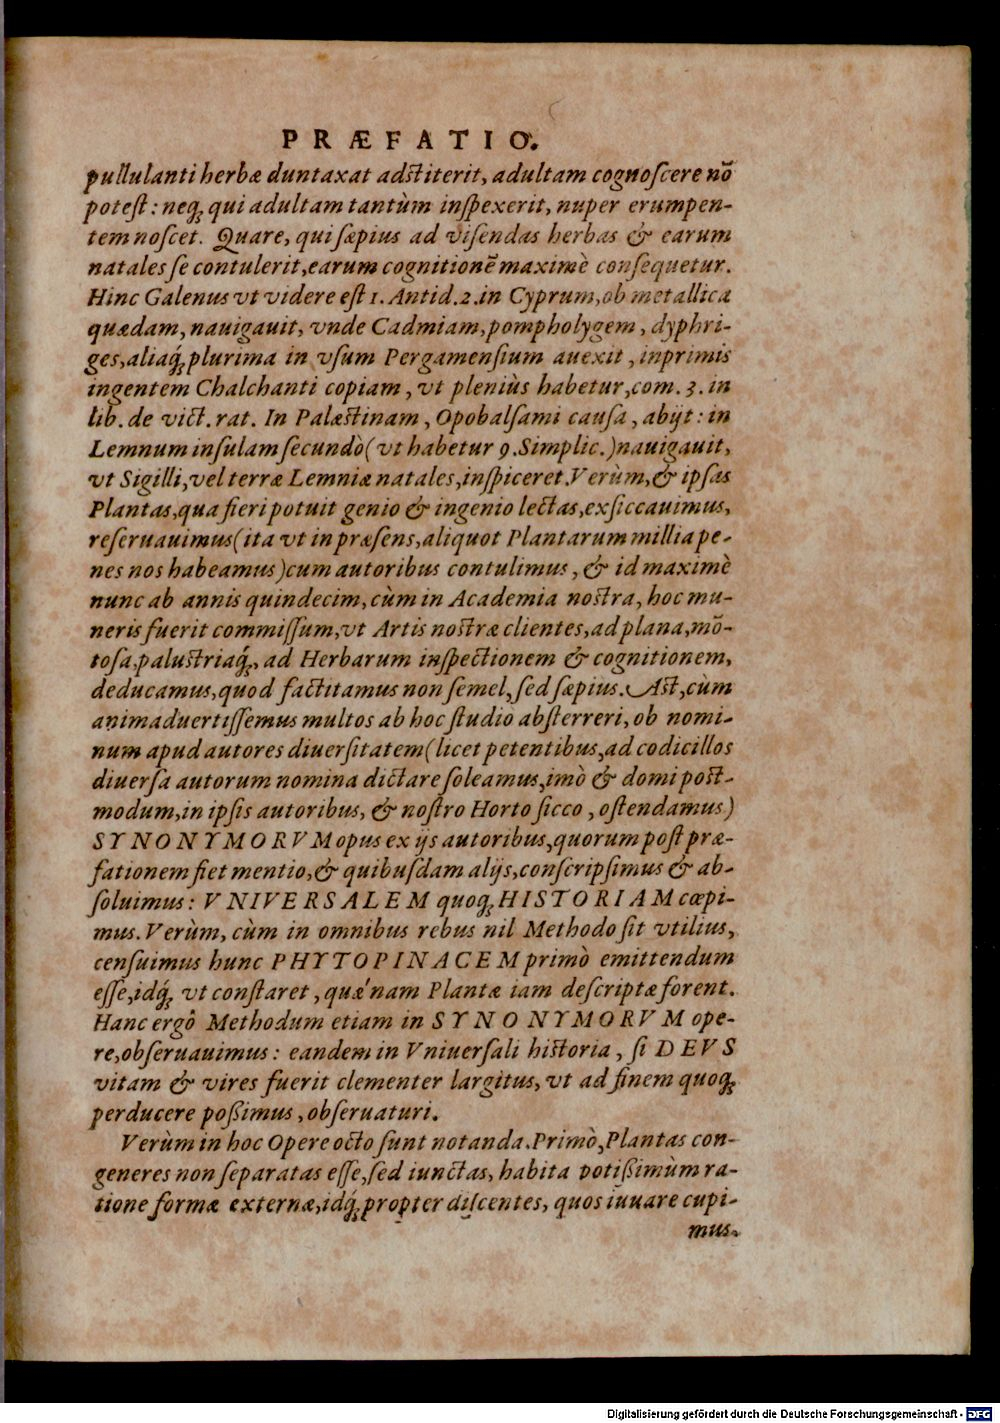 PRÆFATIO.
pullulanti herbæ duntaxat adſtiterit, adultam cognoſcere nō
poteſt: neq; qui adultam tantùm inſpexerit, nuper erumpen-
tem noſcet. Quare, qui ſæpius ad viſendas herbas & earum
natales ſe contulerit, earum cognitionē maximè conſequetur.
Hinc Galenus vt videre eſt 1. Antid. 2. in Cyprum, ob metallica
quædam, nauigauit, vnde Cadmiam, pompholygem, dyphri-
ges, aliaq́; plurima in vſum Pergamenſium auexit, inprimis
ingentem Chalchanti copiam, vt pleniùs habetur, com. 3. in
lib. de vict. rat. In Palæſtinam, Opobalſami cauſa, abijt: in
Lemnum inſulam ſecundò (vt habetur 9. Simplic.) nauigauit,
vt Sigilli, vel terræ Lemniæ natales, inſpiceret. Verùm, & ipſas
Plantas, qua fieri potuit genio & ingenio lectas, exſiccauimus,
reſeruauimus (ita vt in præſens, aliquot Plantarum millia pe-
nes nos habeamus) cum autoribus contulimus, & id maximè
nunc ab annis quindecim, cùm in Academia noſtra, hoc mu-
neris fuerit commiſſum, vt Artis noſtræ clientes, ad plana, mō-
toſa, paluſtriaq́;, ad Herbarum inſpectionem & cognitionem,
deducamus, quod factitamus non ſemel, ſed ſæpius. Aſt, cùm
animaduertiſſemus multos ab hoc ſtudio abſterreri, ob nomi-
num apud autores diuerſitatem (licet petentibus, ad codicillos
diuerſa autorum nomina dictare ſoleamus, imò & domi poſt-
modum, in ipſis autoribus, & noſtro Horto ſicco, oſtendamus)
SYNONYMORVM opus ex ijs autoribus, quorum poſt præ-
fationem fiet mentio, & quibuſdam alijs, conſcripſimus & ab-
ſoluimus: VNIVERSALEM quoq; HISTORIAM cœpi-
mus. Verùm, cùm in omnibus rebus nil Methodo ſit vtilius,
cenſuimus hunc PHYTOPINACEM primò emittendum
eſſe, idq́; vt conſtaret, quæ'nam Plantæ iam deſcriptæ forent.
Hanc ergô Methodum etiam in SYNONYMORVM ope-
re, obſeruauimus: eandem in Vniuerſali hiſtoria, ſi DEVS
vitam & vires fuerit clementer largitus, vt ad finem quoq;
perducere poßimus, obſeruaturi.
Verùm in hoc Opere octo ſunt notanda. Primò, Plantas con-
generes non ſeparatas eſſe, ſed iunctas, habita potißimùm ra-
tione formæ externæ, idq́; propter diſcentes, quos iuuare cupi-
mus.
Digitalisierung gefördert durch die Deutsche Forschungsgemeinschaft - DFG